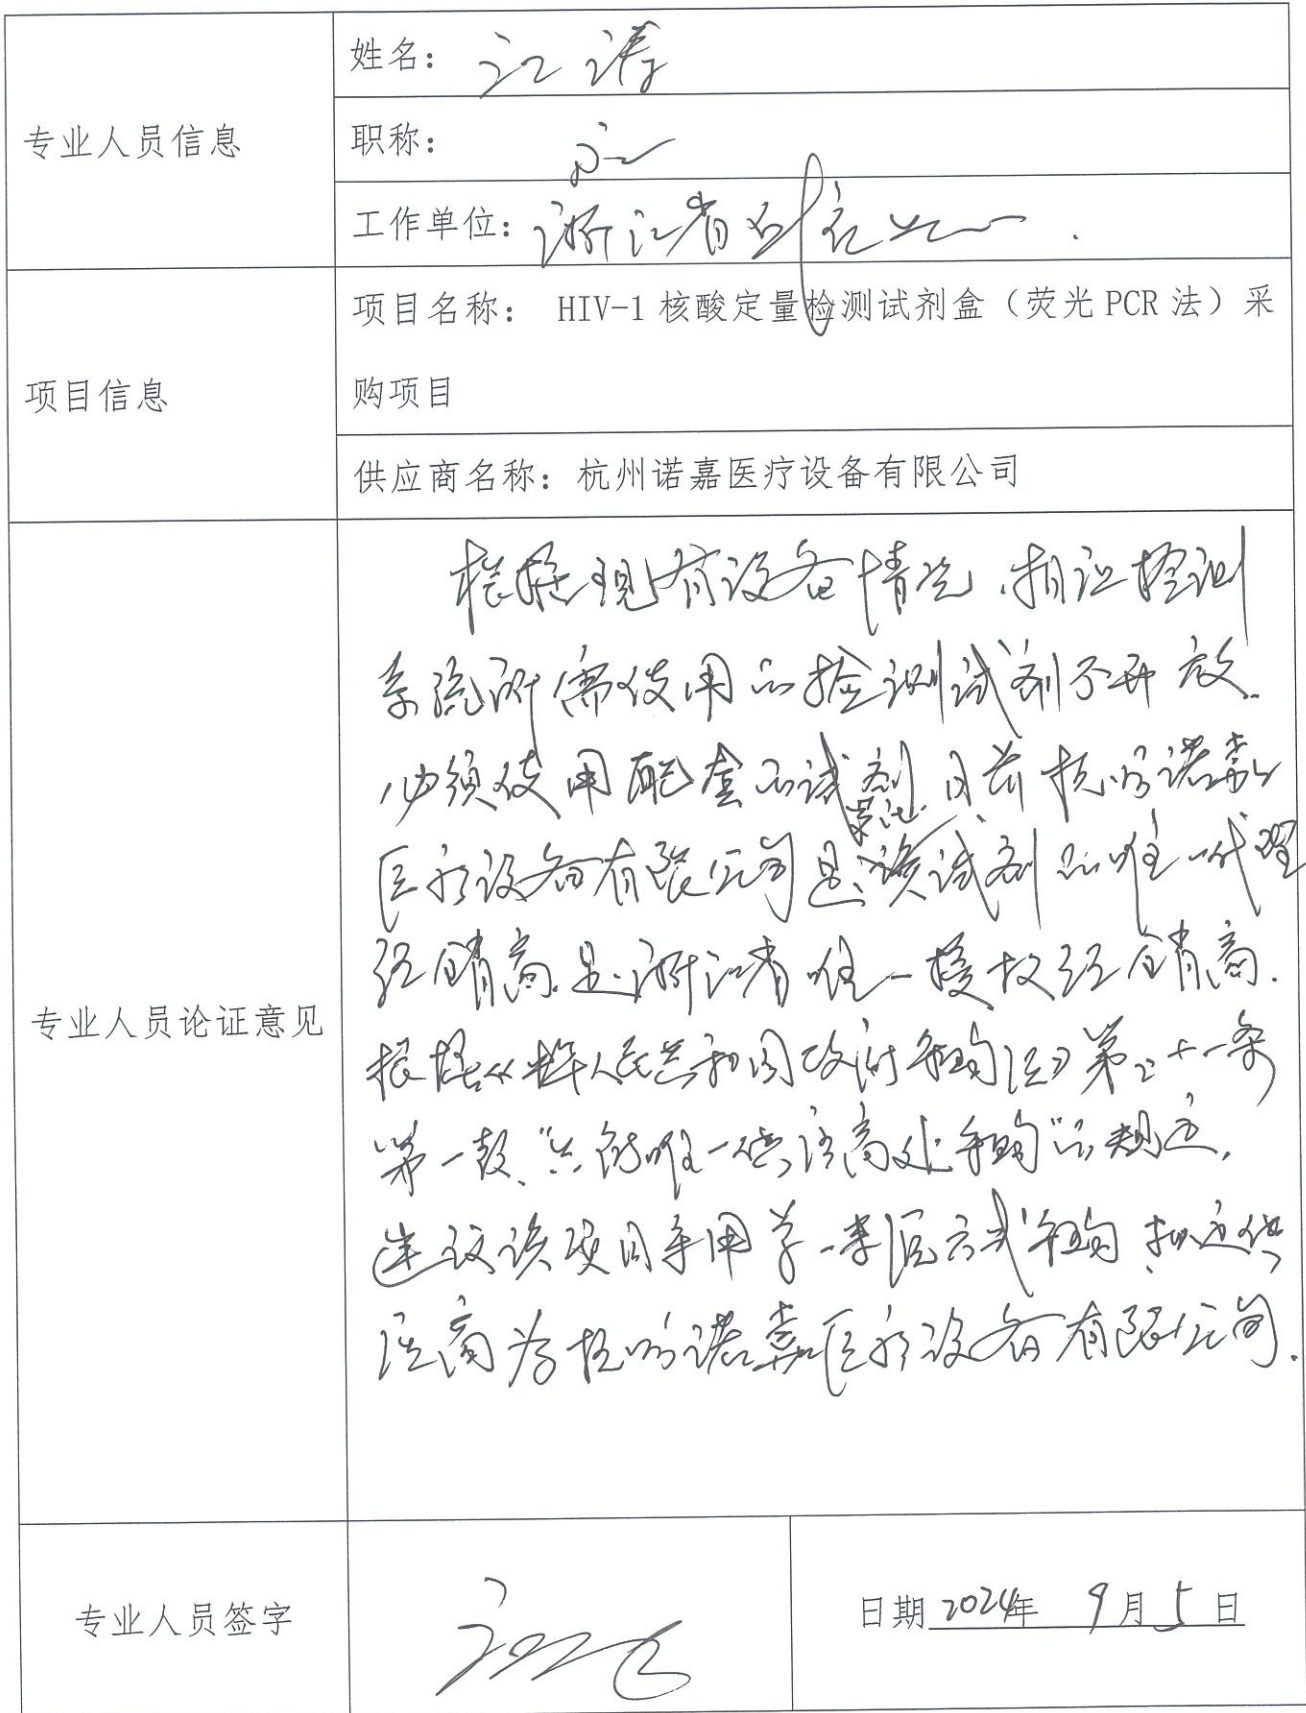 专业人员信息
姓名：江涛
职称：
工作单位：浙江省
项目信息
项目名称： HIV-1 核酸定量检测试剂盒（荧光 PCR 法）采
购项目
供应商名称：杭州诺嘉医疗设备有限公司
专业人员论证意见
根据现有设备情况，相应检测
系统所需使用的检测试剂不开放。
必须使用配套的试剂 目前杭州诺嘉
医疗设备有限公司是该试剂的唯一代理
经销商，是浙江省唯一授权经销商。
根据《中华人民共和国政府采购法》第三十一条
第一款，“只能唯一供应商处采购”的规定，
建议该项目采用单一来源方式采购，拟定供
应商为杭州诺嘉医疗设备有限公司。
专业人员签字
日期 2024年 9月5日